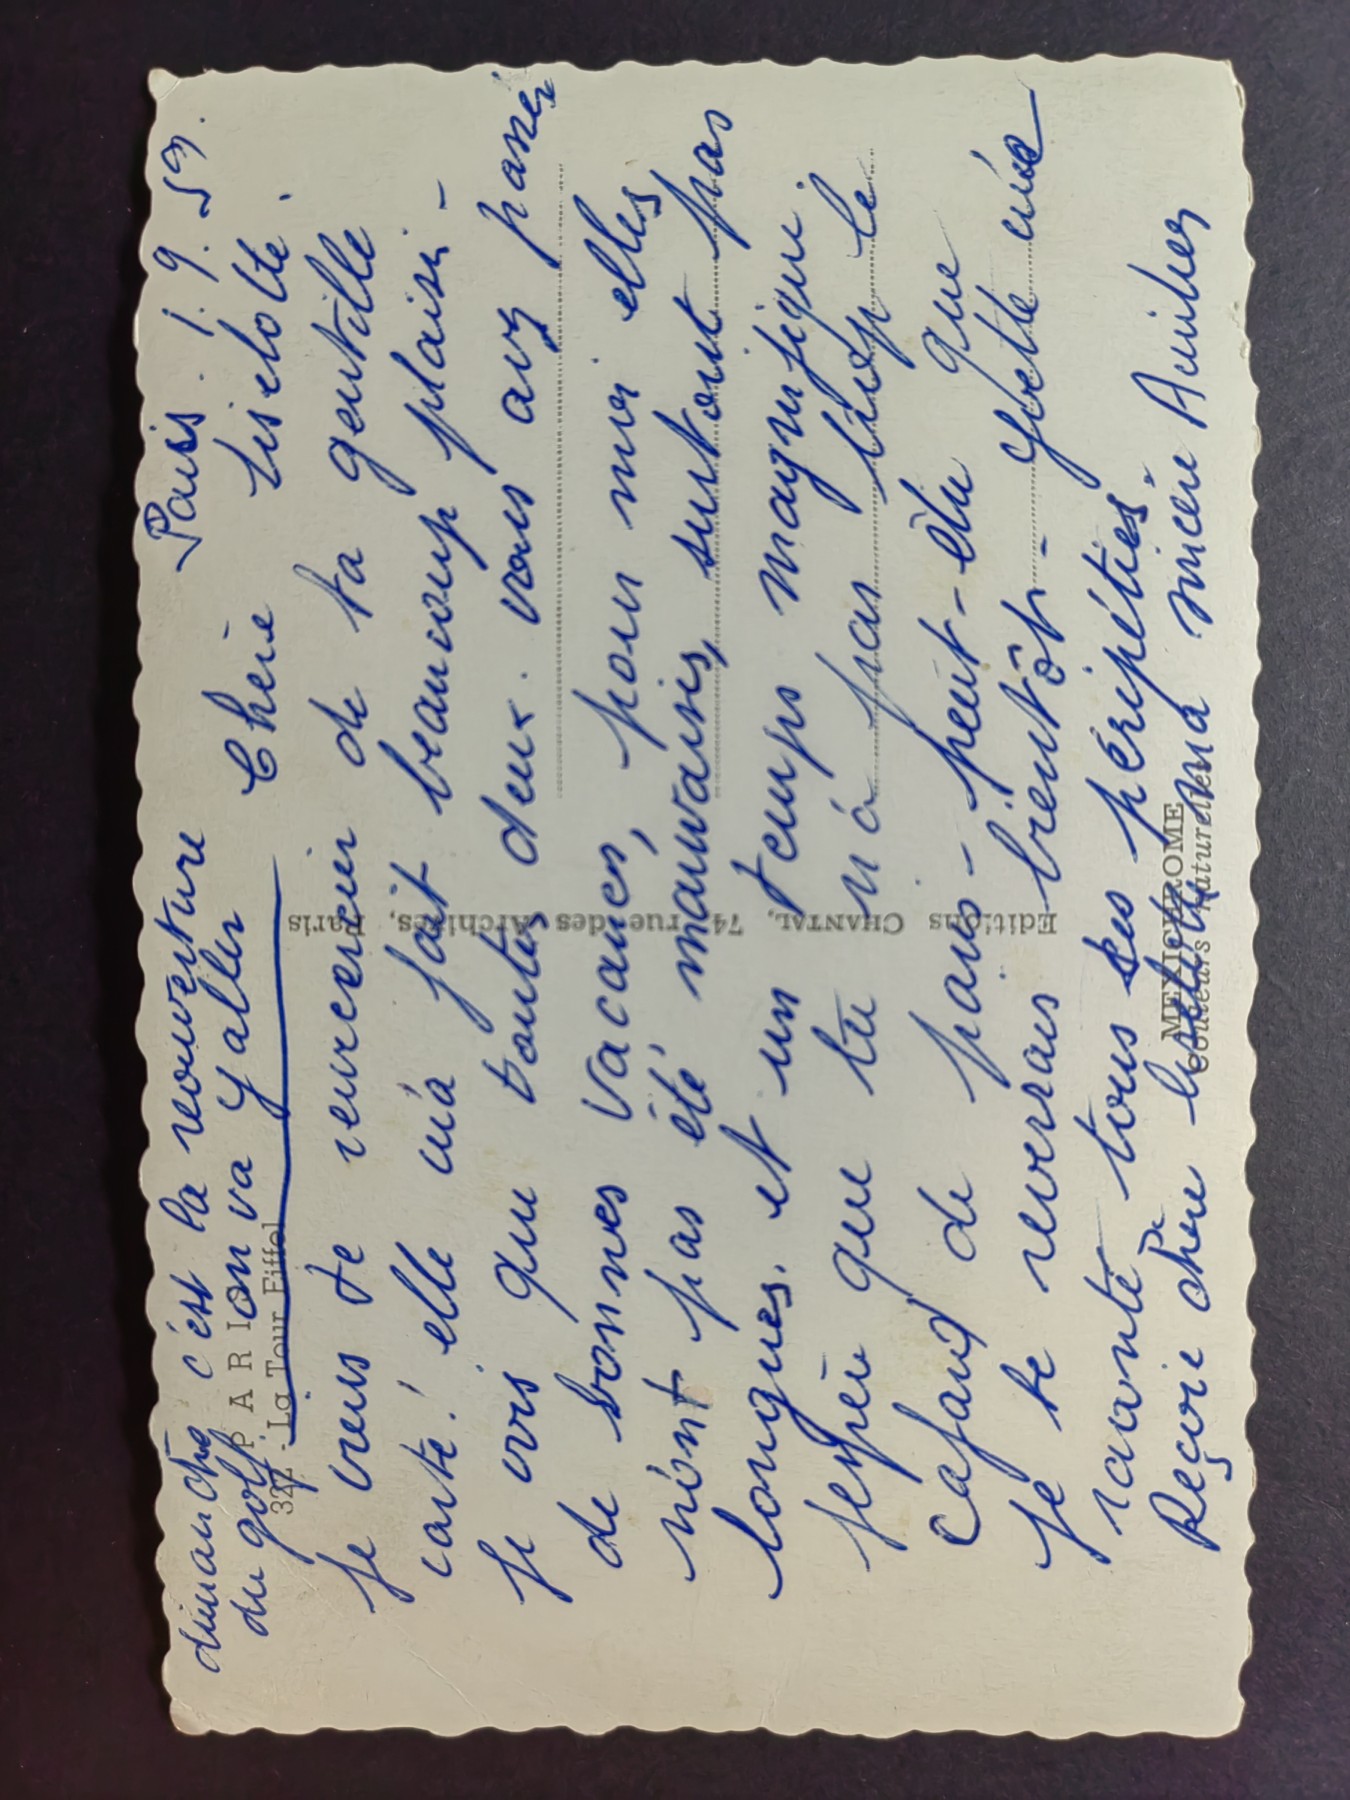 Paris. 1. 9. 59.
dimanche c'est la réouverture
du golf on va y aller
Chère Liselotte.
je viens te remercier de ta gentille
carte! elle m'a fait beaucoup plaisir -
je vois que toutes deux. vous avez passer
de bonnes vacances, pour moi elles
n'ont pas été mauvaises, surtout pas
longues. et un temps magnifique
j'espère que tu n'a pas trop le
cafard de paris - peut-être que
je te reverrais bientôt - yvette m'a
raconté tous ses péripéties.
Reçoie chère Liselotte ma sincère Amitiés
327 - PARIS
La Tour Eiffel
Editions CHANTAL, 74, rue des Archives, Paris
MEXICHROME
Couleurs Naturelles